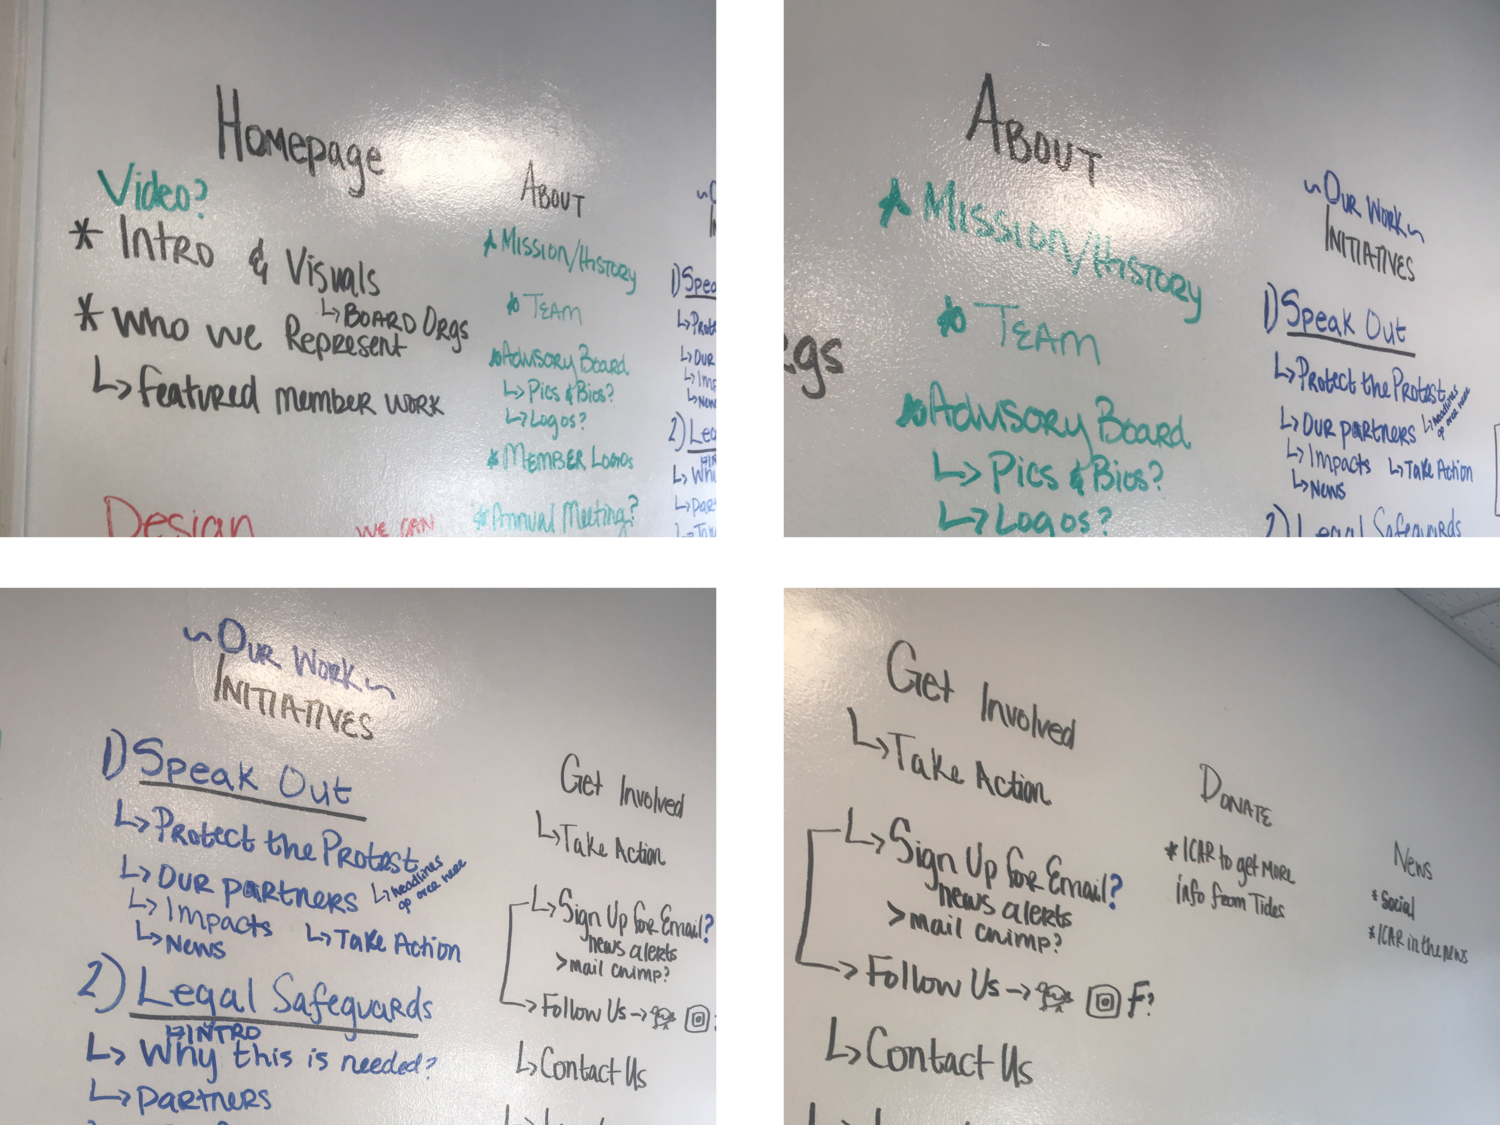 Homepage
Video?
* Intro & Visuals
↳ Board Orgs
* Who we Represent
↳ Featured member work
Design
we can
About
* Mission/History
* Team
* Advisory Board
↳ Pics & Bios?
↳ Logos?
* Member Logos
* Annual Meeting?
1) Spea
↳ Prote
↳ Our
↳ Imp
↳ News
2) Leg
↳ Why
↳ Part
↳ Ta
About
* Mission/History
* Team
* Advisory Board
↳ Pics & Bios?
↳ Logos?
rgs
~Our Work~
Initiatives
1) Speak Out
↳ Protect the Protest
↳ Our partners
↳ headlines
go over here
↳ Impacts ↳ Take Action
↳ News
2) Legal Safeguards
~Our Work~
Initiatives
1) Speak Out
↳ Protect the Protest
↳ Our partners
↳ headlines
go over here
↳ Impacts
↳ News ↳ Take Action
2) Legal Safeguards
INTRO
↳ Why this is needed?
↳ Partners
Get Involved
↳ Take Action
↳ Sign Up for Email?
news alerts
> mail chimp?
↳ Follow Us →
↳ Contact Us
Get Involved
↳ Take Action
↳ Sign Up for Email?
news alerts
> mail chimp?
↳ Follow Us → F?
↳ Contact Us
Donate
* ICAR to get more
info from Tides
News
* Social
* ICAR in the news